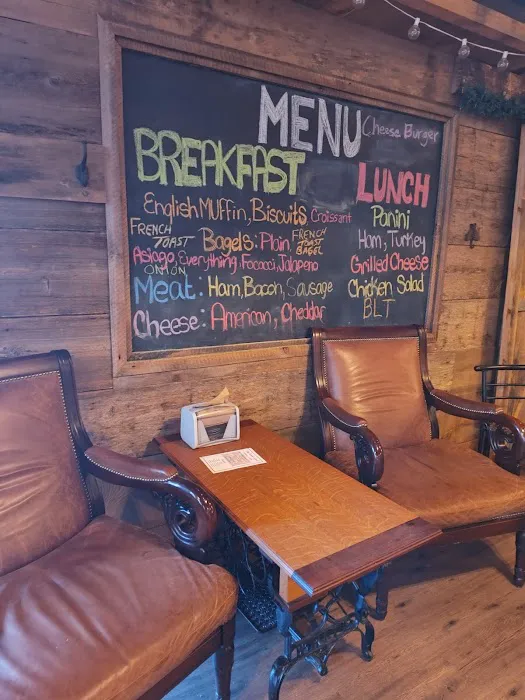 MENU
Cheese Burger
BREAKFAST
English Muffin, Biscuits Croissant
FRENCH TOAST Bagels: Plain, FRENCH TOAST BAGEL
Asiago, Everything, Focacci, Jalapeno
ONION
Meat: Ham, Bacon, Sausage
Cheese: American, Cheddar
LUNCH
Panini
Ham, Turkey
Grilled Cheese
Chicken Salad
BLT